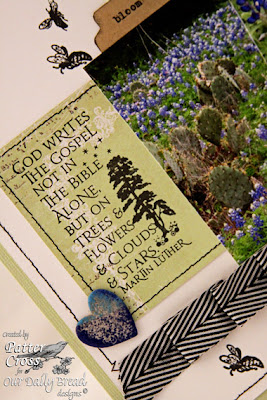 bloom
GOD WRITES
THE GOSPEL
NOT IN
THE BIBLE
ALONE
BUT ON
TREES &
FLOWERS
& CLOUDS
& STARS
MARTIN LUTHER
created by
Patter
Cross
for
Our Daily Bread
designs©